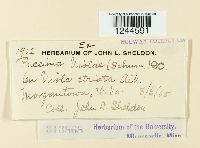 1244591
Ex-
1912 HERBARIUM OF JOHN L. SHELDON.
Puccinia Violae (Schum.) DC.
On Viola striata Ait.
Morgantown, W. Va.
Coll. John L. Sheldon
Herbarium of the University,
Minneapolis, Minn.